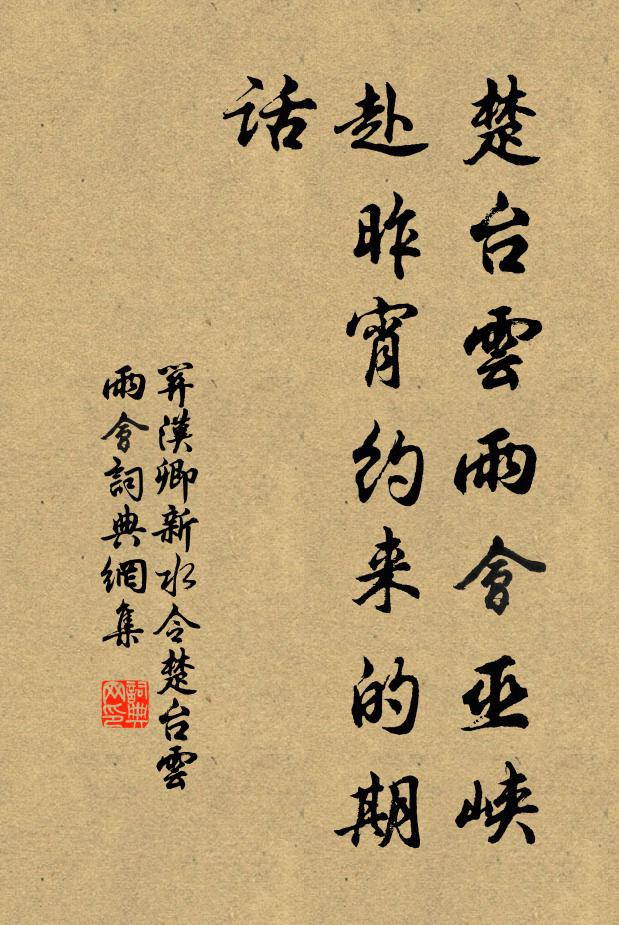 楚台雲雨會巫峽
赴昨宵約来的期
话
関漢卿新水令楚台雲
雨會詞典網集
詞典
网印